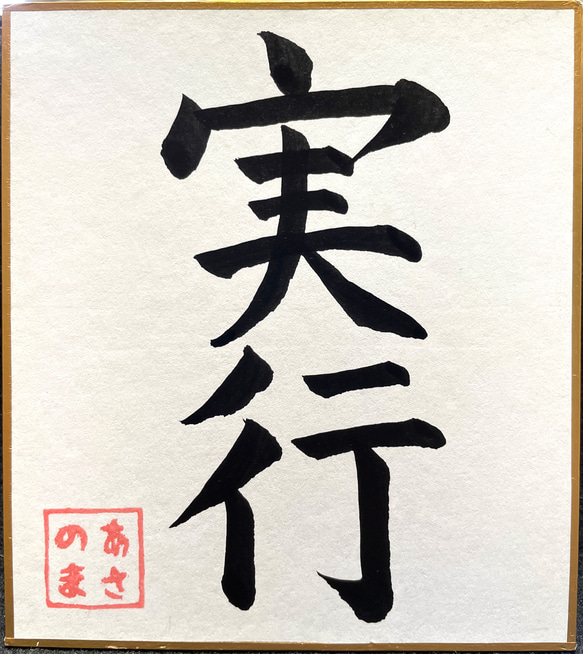 実行
あさ
のま